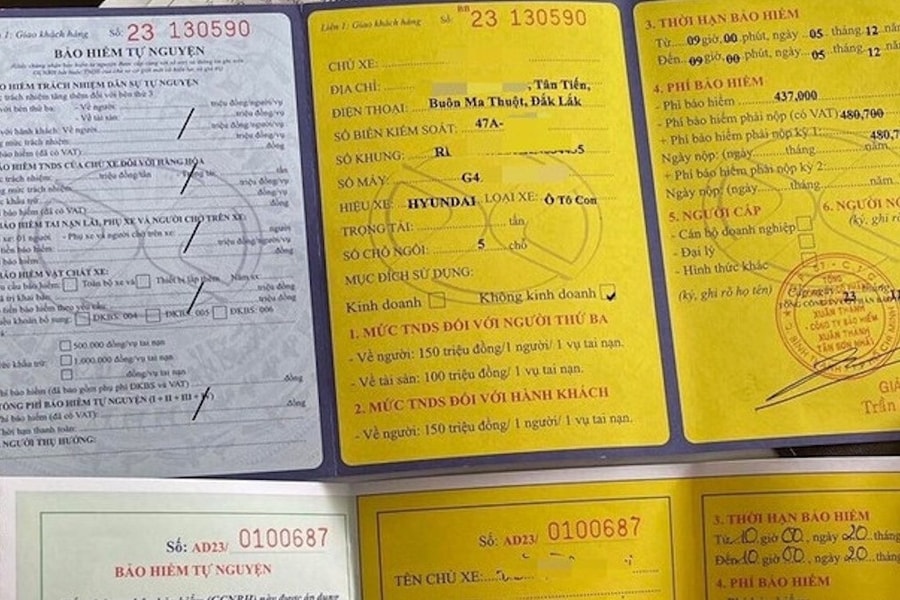 1: Giao khách hàng Số: 23 130590
BẢO HIỂM TỰ NGUYỆN
BẢO HIỂM TRÁCH NHIỆM DÂN SỰ TỰ NGUYỆN
trách nhiệm tăng thêm đối với bên thứ 3
với bên thứ ba: - Về người triệu đồng/người/vụ
- Về tài sản: triệu đồng/vụ
với hành khách: Về người triệu đồng/người/vụ
mức trách nhiệm: triệu đồng/vụ
bảo hiểm (đã có VAT) đồng
BẢO HIỂM TNDS CỦA CHỦ XE ĐỐI VỚI HÀNG HÓA
trách nhiệm: triệu đồng/tấn tấn
mức trách nhiệm triệu đồng/vụ
khấu trừ:
bảo hiểm (đã có VAT) đồng
BẢO HIỂM TAI NẠN LÁI, PHỤ XE VÀ NGƯỜI CHỞ TRÊN XE:
xe: 01 người - Phụ xe và người chở trên xe: người
triệu đồng/người/vụ
bảo hiểm: đồng
BẢO HIỂM VẬT CHẤT XE:
cầu bảo hiểm: Toàn bộ xe và Thiết bị lắp thêm Năm sx
trị khai báo: triệu đồng
tiền bảo hiểm theo yêu cầu: triệu đồng
khoản bổ sung: ĐKBS: 004 ĐKBS: 005 ĐKBS: 006
500.000 đồng/vụ tai nạn
khấu trừ: 1.000.000 đồng/vụ tai nạn
đồng/vụ tai nạn
phí bảo hiểm (đã bao gồm phụ phí ĐKBS và VAT) đồng
TỔNG PHÍ BẢO HIỂM TỰ NGUYỆN (I + II + III + IV)
Phí bảo hiểm (đã có VAT): đồng
Thời hạn thanh toán:
NGƯỜI THỤ HƯỞNG:
Liên 1: Giao khách hàng Số: BB 23 130590
CHỦ XE:
ĐỊA CHỈ: , Tân Tiến,
ĐIỆN THOẠI: Buôn Ma Thuột, Đắk Lắk
SỐ BIỂN KIỂM SOÁT: 47A-
SỐ KHUNG: RL 5
SỐ MÁY: G4
HIỆU XE: HYUNDAI LOẠI XE: Ô Tô Con
TRỌNG TẢI: tấn
SỐ CHỖ NGỒI: 5 chỗ
MỤC ĐÍCH SỬ DỤNG:
Kinh doanh Không kinh doanh ✓
1. MỨC TNDS ĐỐI VỚI NGƯỜI THỨ BA
- Về người: 150 triệu đồng/1 người/ 1 vụ tai nạn.
- Về tài sản: 100 triệu đồng/ 1 vụ tai nạn.
2. MỨC TNDS ĐỐI VỚI HÀNH KHÁCH
- Về người: 150 triệu đồng/ 1 người/ 1 vụ tai nạn.
3. THỜI HẠN BẢO HIỂM
Từ 09 giờ, 00 phút, ngày 05 tháng 12 năm
Đến 09 giờ, 00 phút, ngày 05 tháng 12 năm
4. PHÍ BẢO HIỂM
- Phí bảo hiểm 437,000
- Phí bảo hiểm phải nộp (có VAT) 480,700
+ Phí bảo hiểm phải nộp kỳ 1: 480,7
Ngày nộp: (ngày tháng năm
+ Phí bảo hiểm phải nộp kỳ 2:
Ngày nộp: (ngày tháng năm
5. NGƯỜI CẤP
- Cán bộ doanh nghiệp
- Đại lý
- Hình thức khác
(ký, ghi rõ họ tên)
6. NGƯỜI
(ký, ghi rõ
Cấp ngày 23 tháng 11
TỔNG
XUÂN THÀNH
CÔNG TY BẢO HIỂM
XUÂN THÀNH
TÂN SƠN NHẤT
GIÁ
Trần
Số: AD23/ 0100687
BẢO HIỂM TỰ NGUYỆN
Số: AD23/ 0100687
TÊN CHỦ XE:
3. THỜI HẠN BẢO HIỂM
Từ 10 giờ 00, ngày 20 tháng
Đến 10 giờ 00, ngày 20 tháng
4. PHÍ BẢO HIỂM